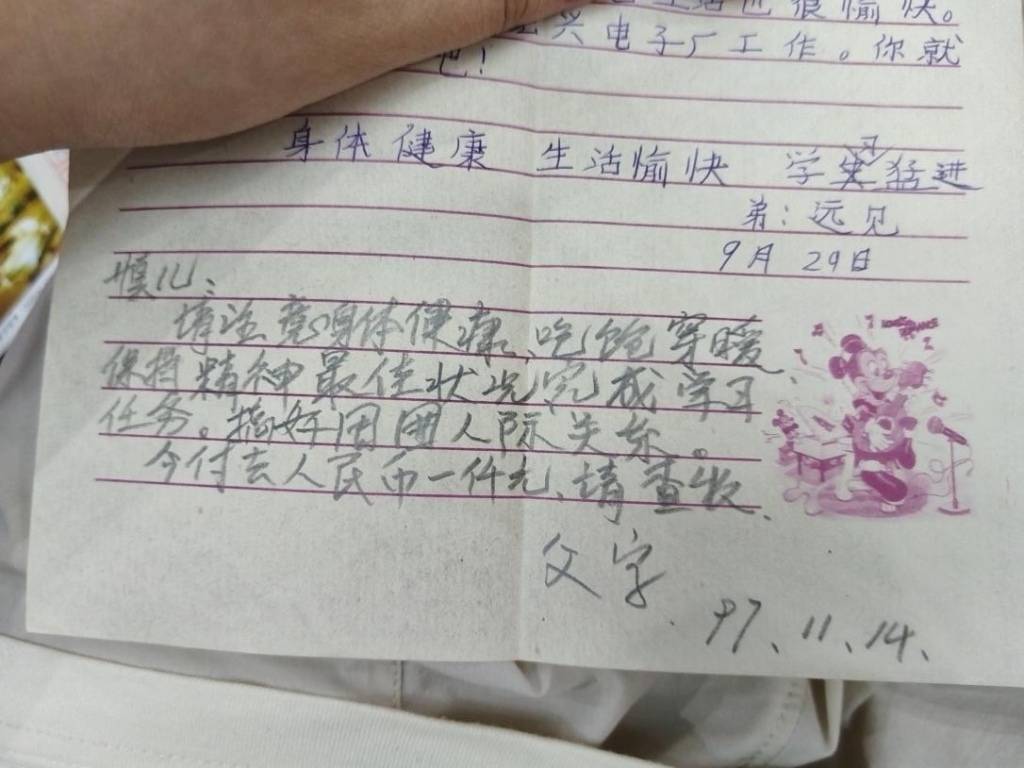 生活也很愉快。
兴电子厂工作。你就
吧!
身体健康 生活愉快 学习猛进
弟:远见
9月29日
慎儿:
请注意身体健康、吃饱穿暖、
保持精神最佳状况完成学习
任务。搞好周围人际关系。
今付去人民币一仟元、请查收、
父字
97、11、14、